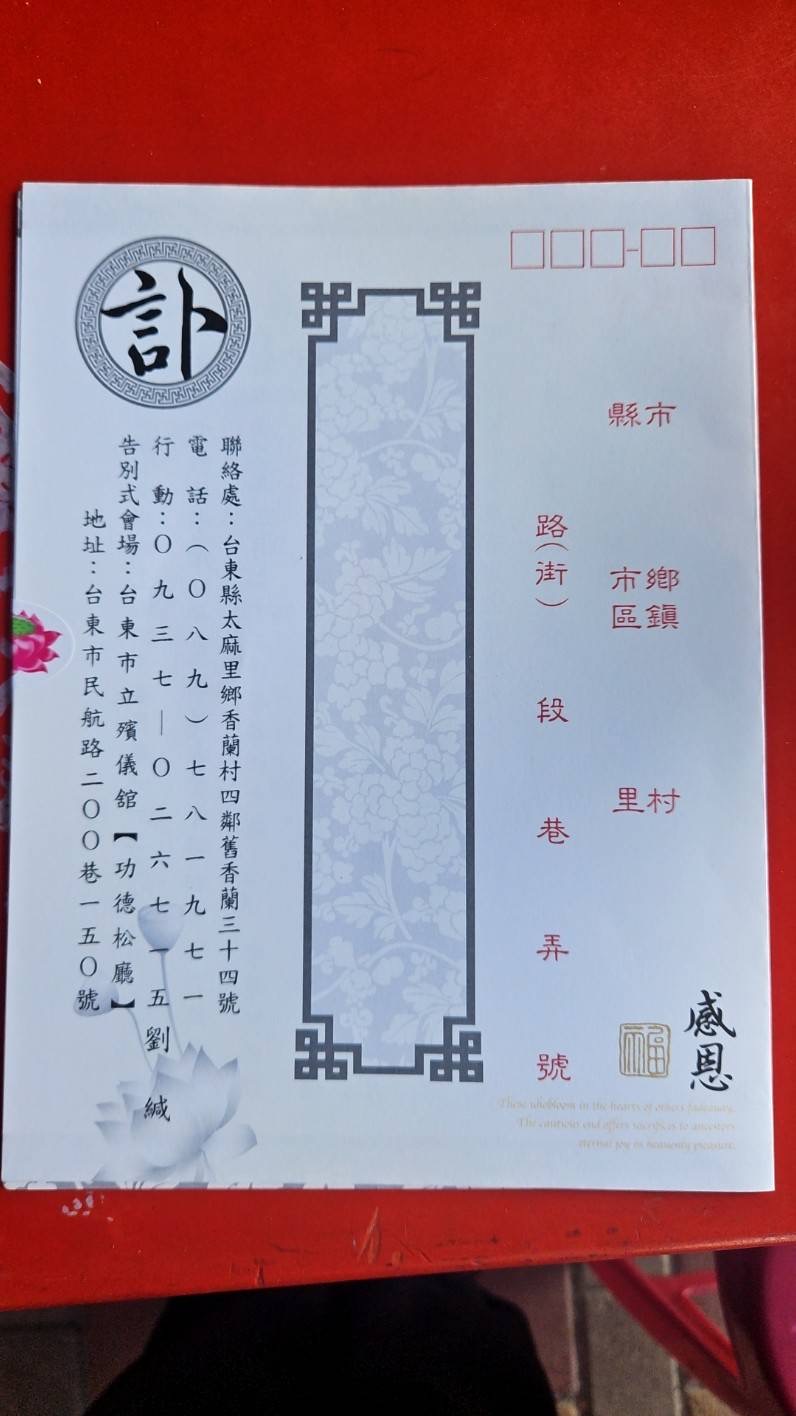 縣市
鄉鎮
市區
村里
路(街)段巷弄號
感恩
福
訃
聯絡處：台東縣太麻里鄉香蘭村四鄰舊香蘭三十四號
電話：(〇八九)七八一九七一
行動：〇九三七—〇二六七一五劉 緘
告別式會場：台東市立殯儀舘【功德松廳】
地址：台東市民航路二〇〇巷一五〇號
The cautious end offers sacrifices to ancestors
eternal joy in heavenly pleasure.